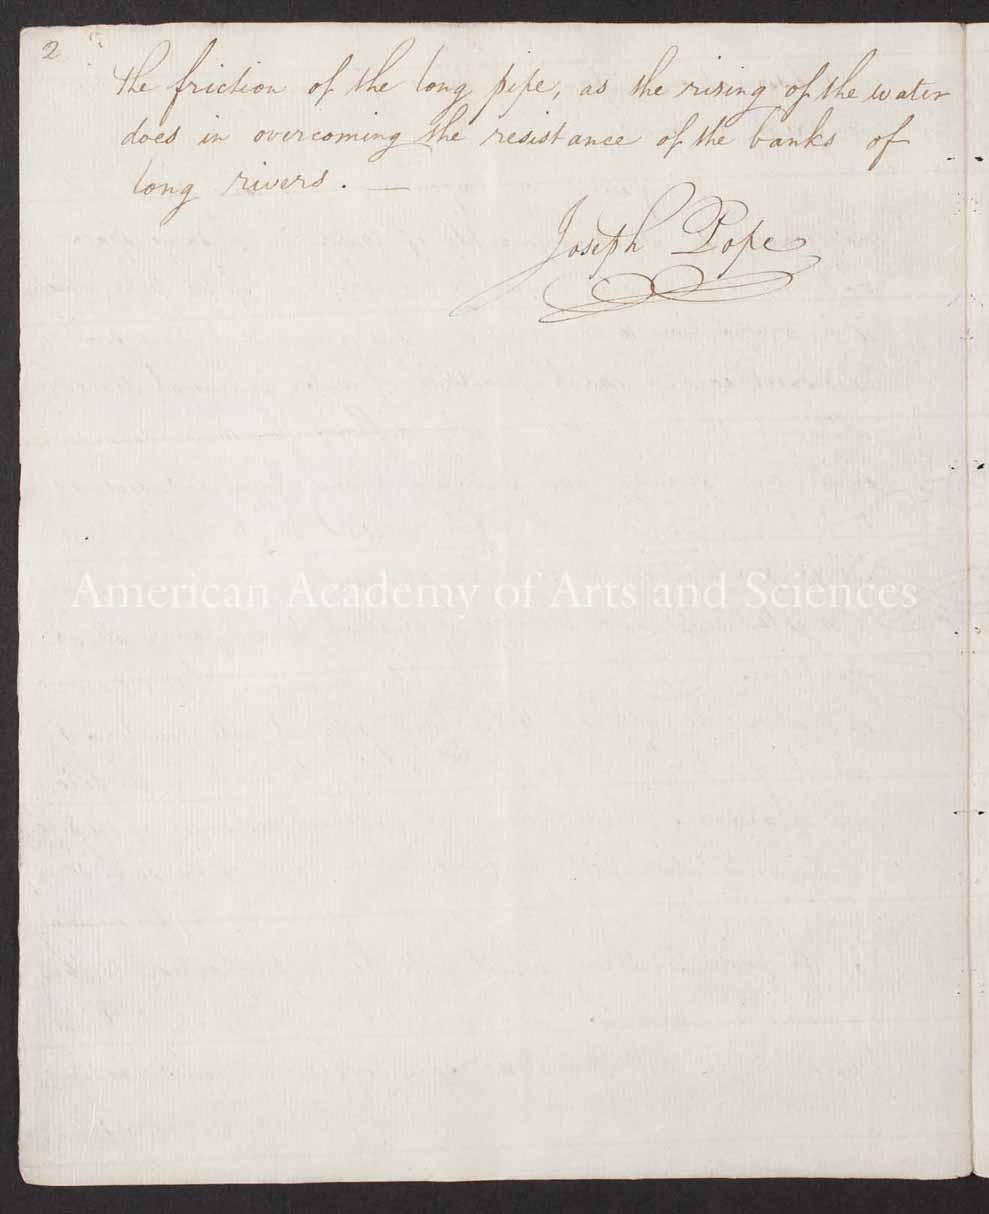 2
the friction of the long pipe, as the rising of the water
does in overcoming the resistance of the banks of
long rivers. —
Joseph Pope
American Academy of Arts and Sciences